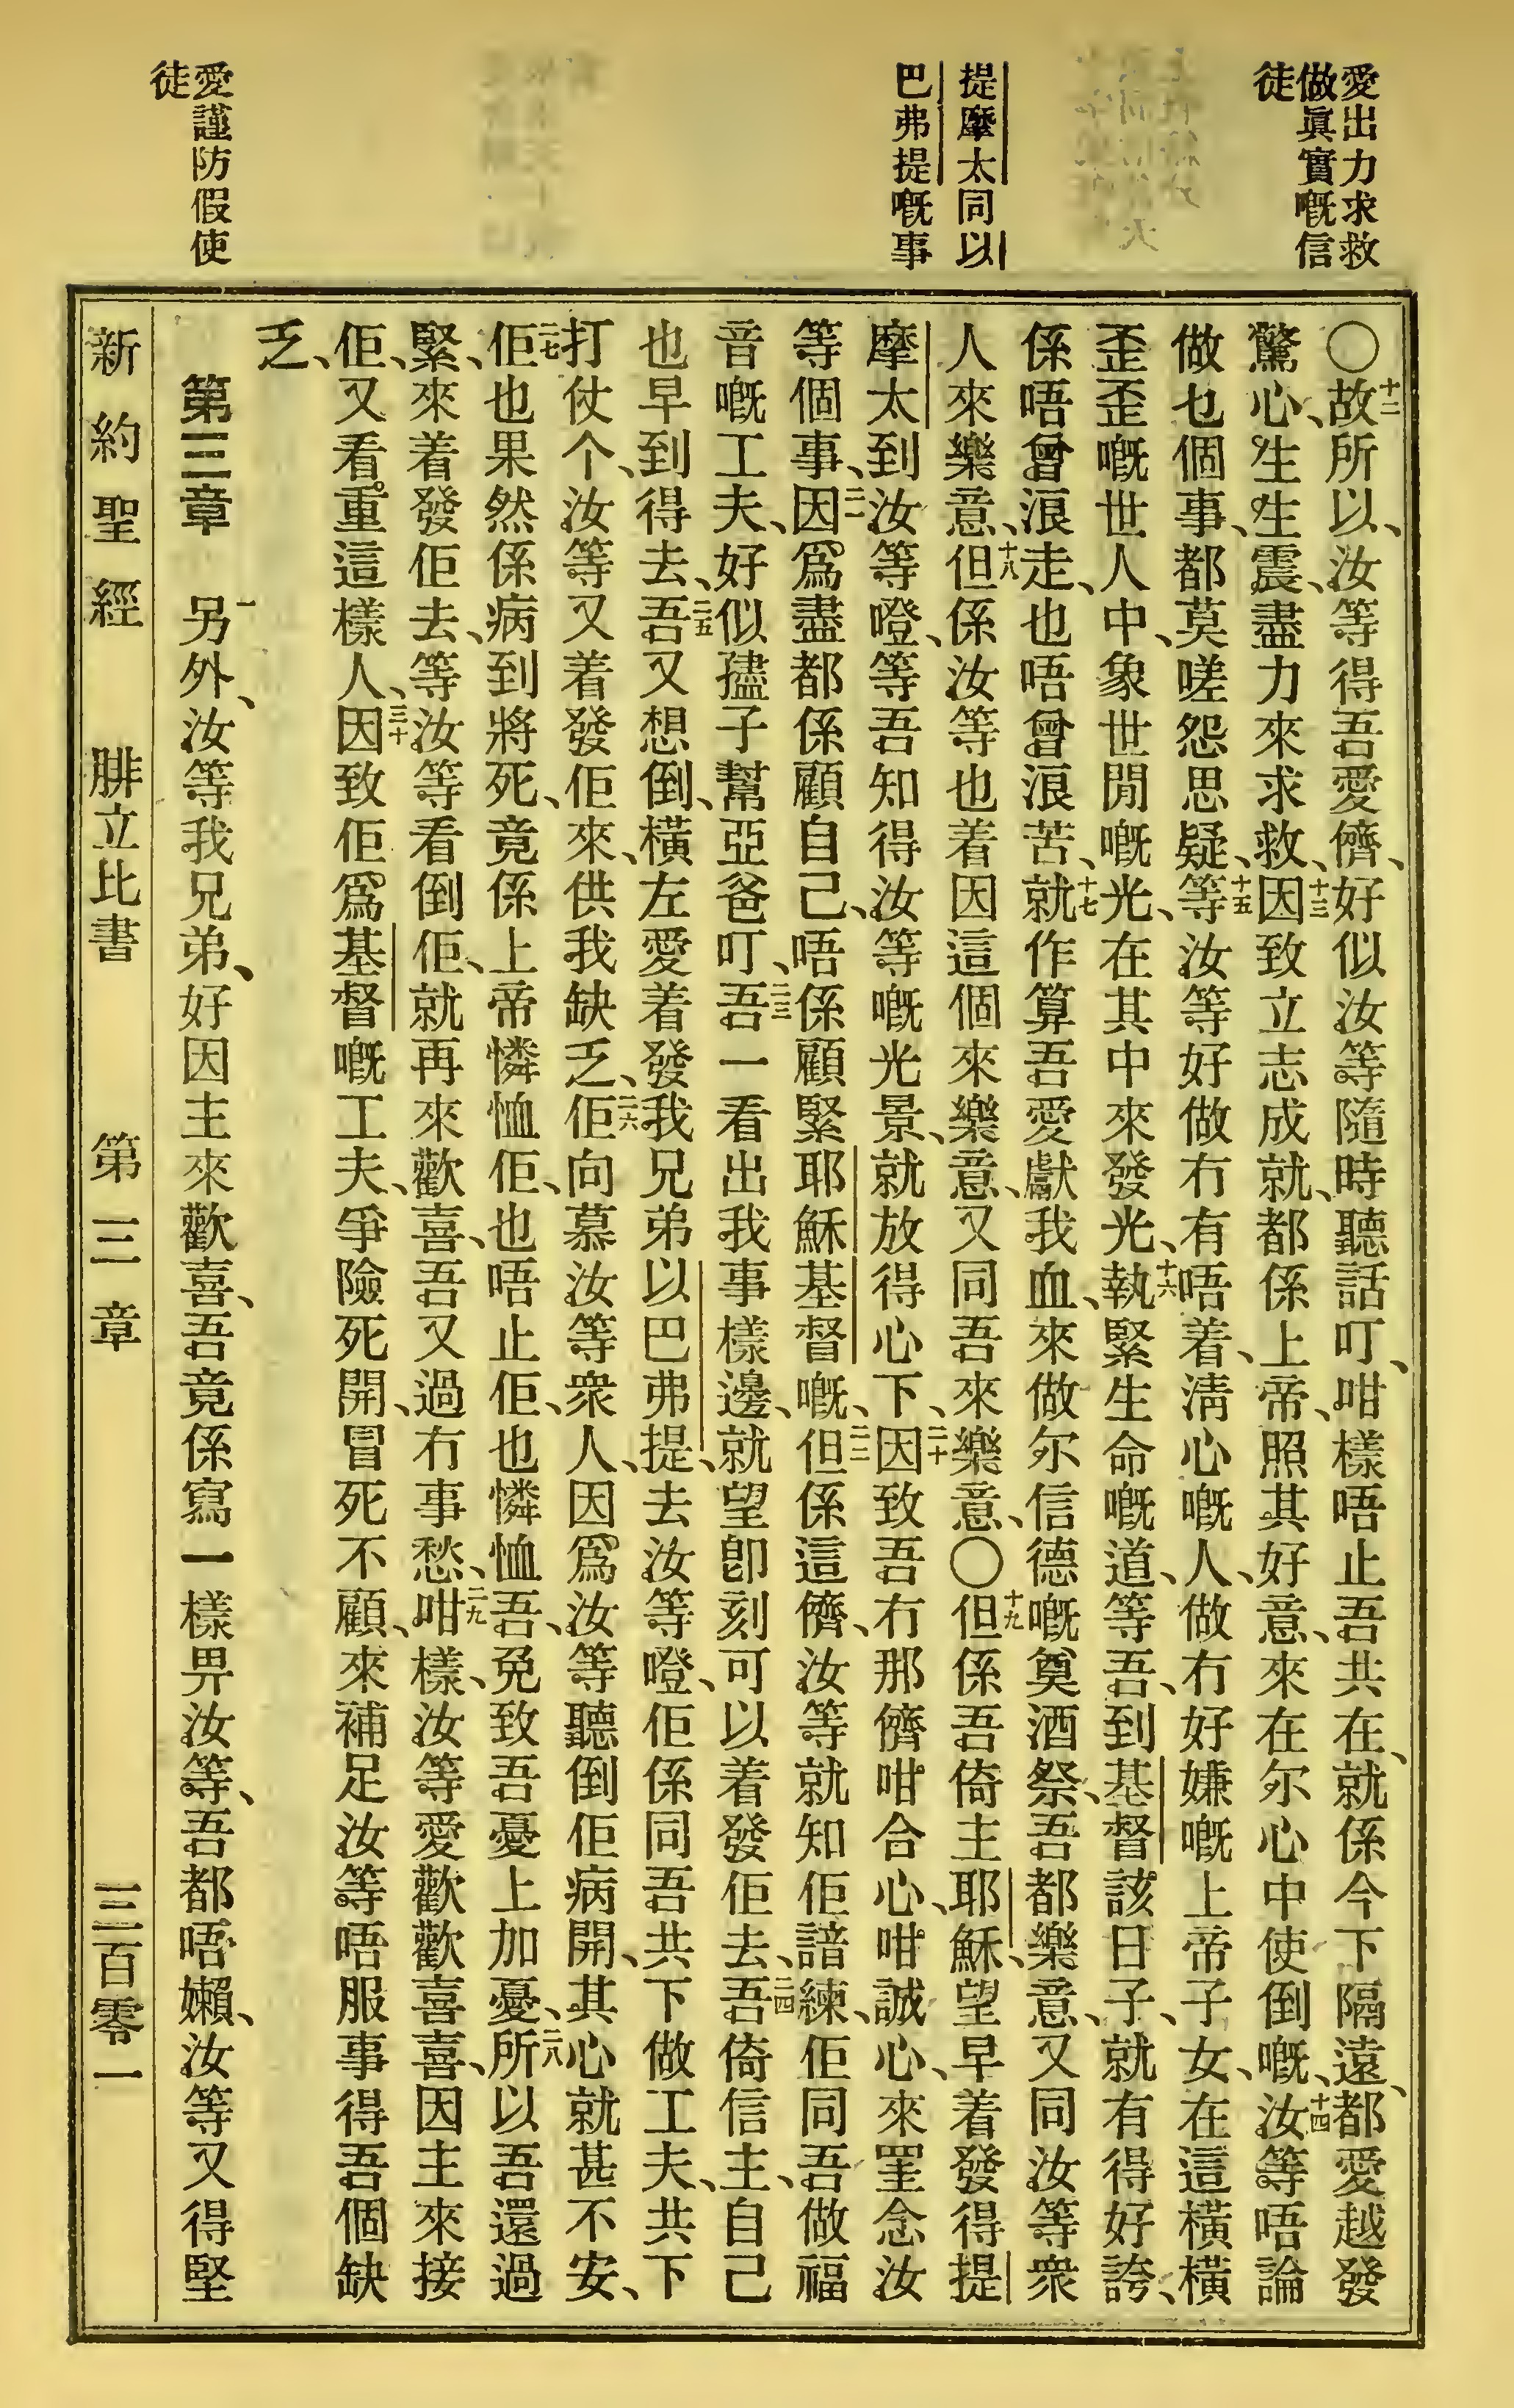 愛出力求救
做眞實嘅信
徒
提摩太同以
巴弗提嘅事
愛謹防假使
徒
〇十二故所以、汝等得吾愛儕、好似汝等隨時聽話叮、咁樣唔止吾共在、就係今下隔遠、都愛越發
驚心、生生震、盡力來求救、十三因致立志成就、都係上帝、照其好意、來在尔心中使倒嘅、十四汝等唔論
做乜個事、都莫嗟怨思疑、十五等汝等好做冇有唔着、淸心嘅人、做冇好嫌嘅上帝子女、在這橫橫
歪歪嘅世人中、象世閒嘅光、在其中來發光、十六執緊生命嘅道、等吾、到基督該日子、就有得好誇、
係唔曾浪走、也唔曾浪苦、十七就作算吾愛獻我血、來做尔信德嘅奠酒祭、吾都樂意、又同汝等衆
人來樂意、十八但係汝等也着因這個來樂意、又同吾來樂意、〇十九但係吾倚主耶穌、望早着發得提
摩太到汝等嶝、等吾知得汝等嘅光景、就放得心下、二十因致吾冇那儕咁合心、咁誠心、來罣念汝
等個事、二一因爲盡都係顧自己、唔係顧緊耶穌基督嘅、二二但係這儕、汝等就知佢諳練、佢同吾做福
音嘅工夫、好似孻子幫亞爸叮、二三吾一看出我事樣邊、就望卽刻可以着發佢去、二四吾倚信主、自己
也早到得去、二五吾又想倒、橫左愛着發我兄弟以巴弗提、去汝等嶝、佢係同吾共下做工夫、共下
打仗个、汝等又着發佢來、供我缺乏、二六佢向慕汝等衆人、因爲汝等聽倒佢病開、其心就甚不安、
二七佢也果然係病到將死、竟係上帝憐恤佢、也唔止佢、也憐恤吾、免致吾憂上加憂、二八所以吾還過
緊、來着發佢去、等汝等看倒佢、就再來歡喜、吾又過冇事愁、二九咁樣、汝等愛歡歡喜喜、因主來接
佢、又看重這樣人、三十因致佢爲基督嘅工夫、爭險死開、冒死不顧、來補足汝等唔服事得吾個缺
乏、
第三章　一另外、汝等我兄弟、好因主來歡喜、吾竟係寫一樣畀汝等、吾都唔嬾、汝等又得堅
新約聖經　腓立比書　第三章　三百零一